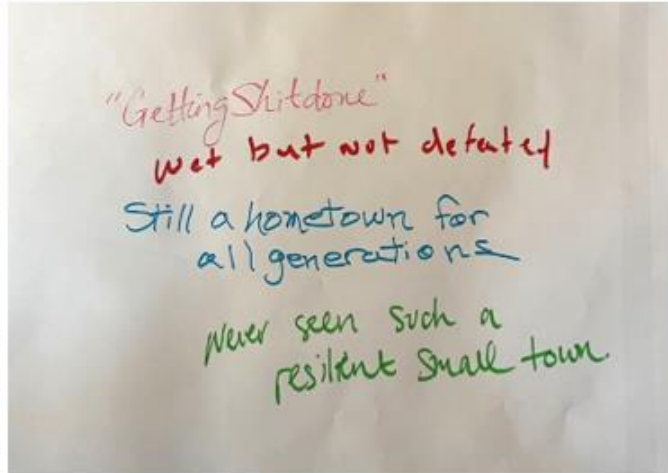 "Getting Shitdone"
wet but not defeated
Still a hometown for
all generations
Never seen such a
resilient small town.